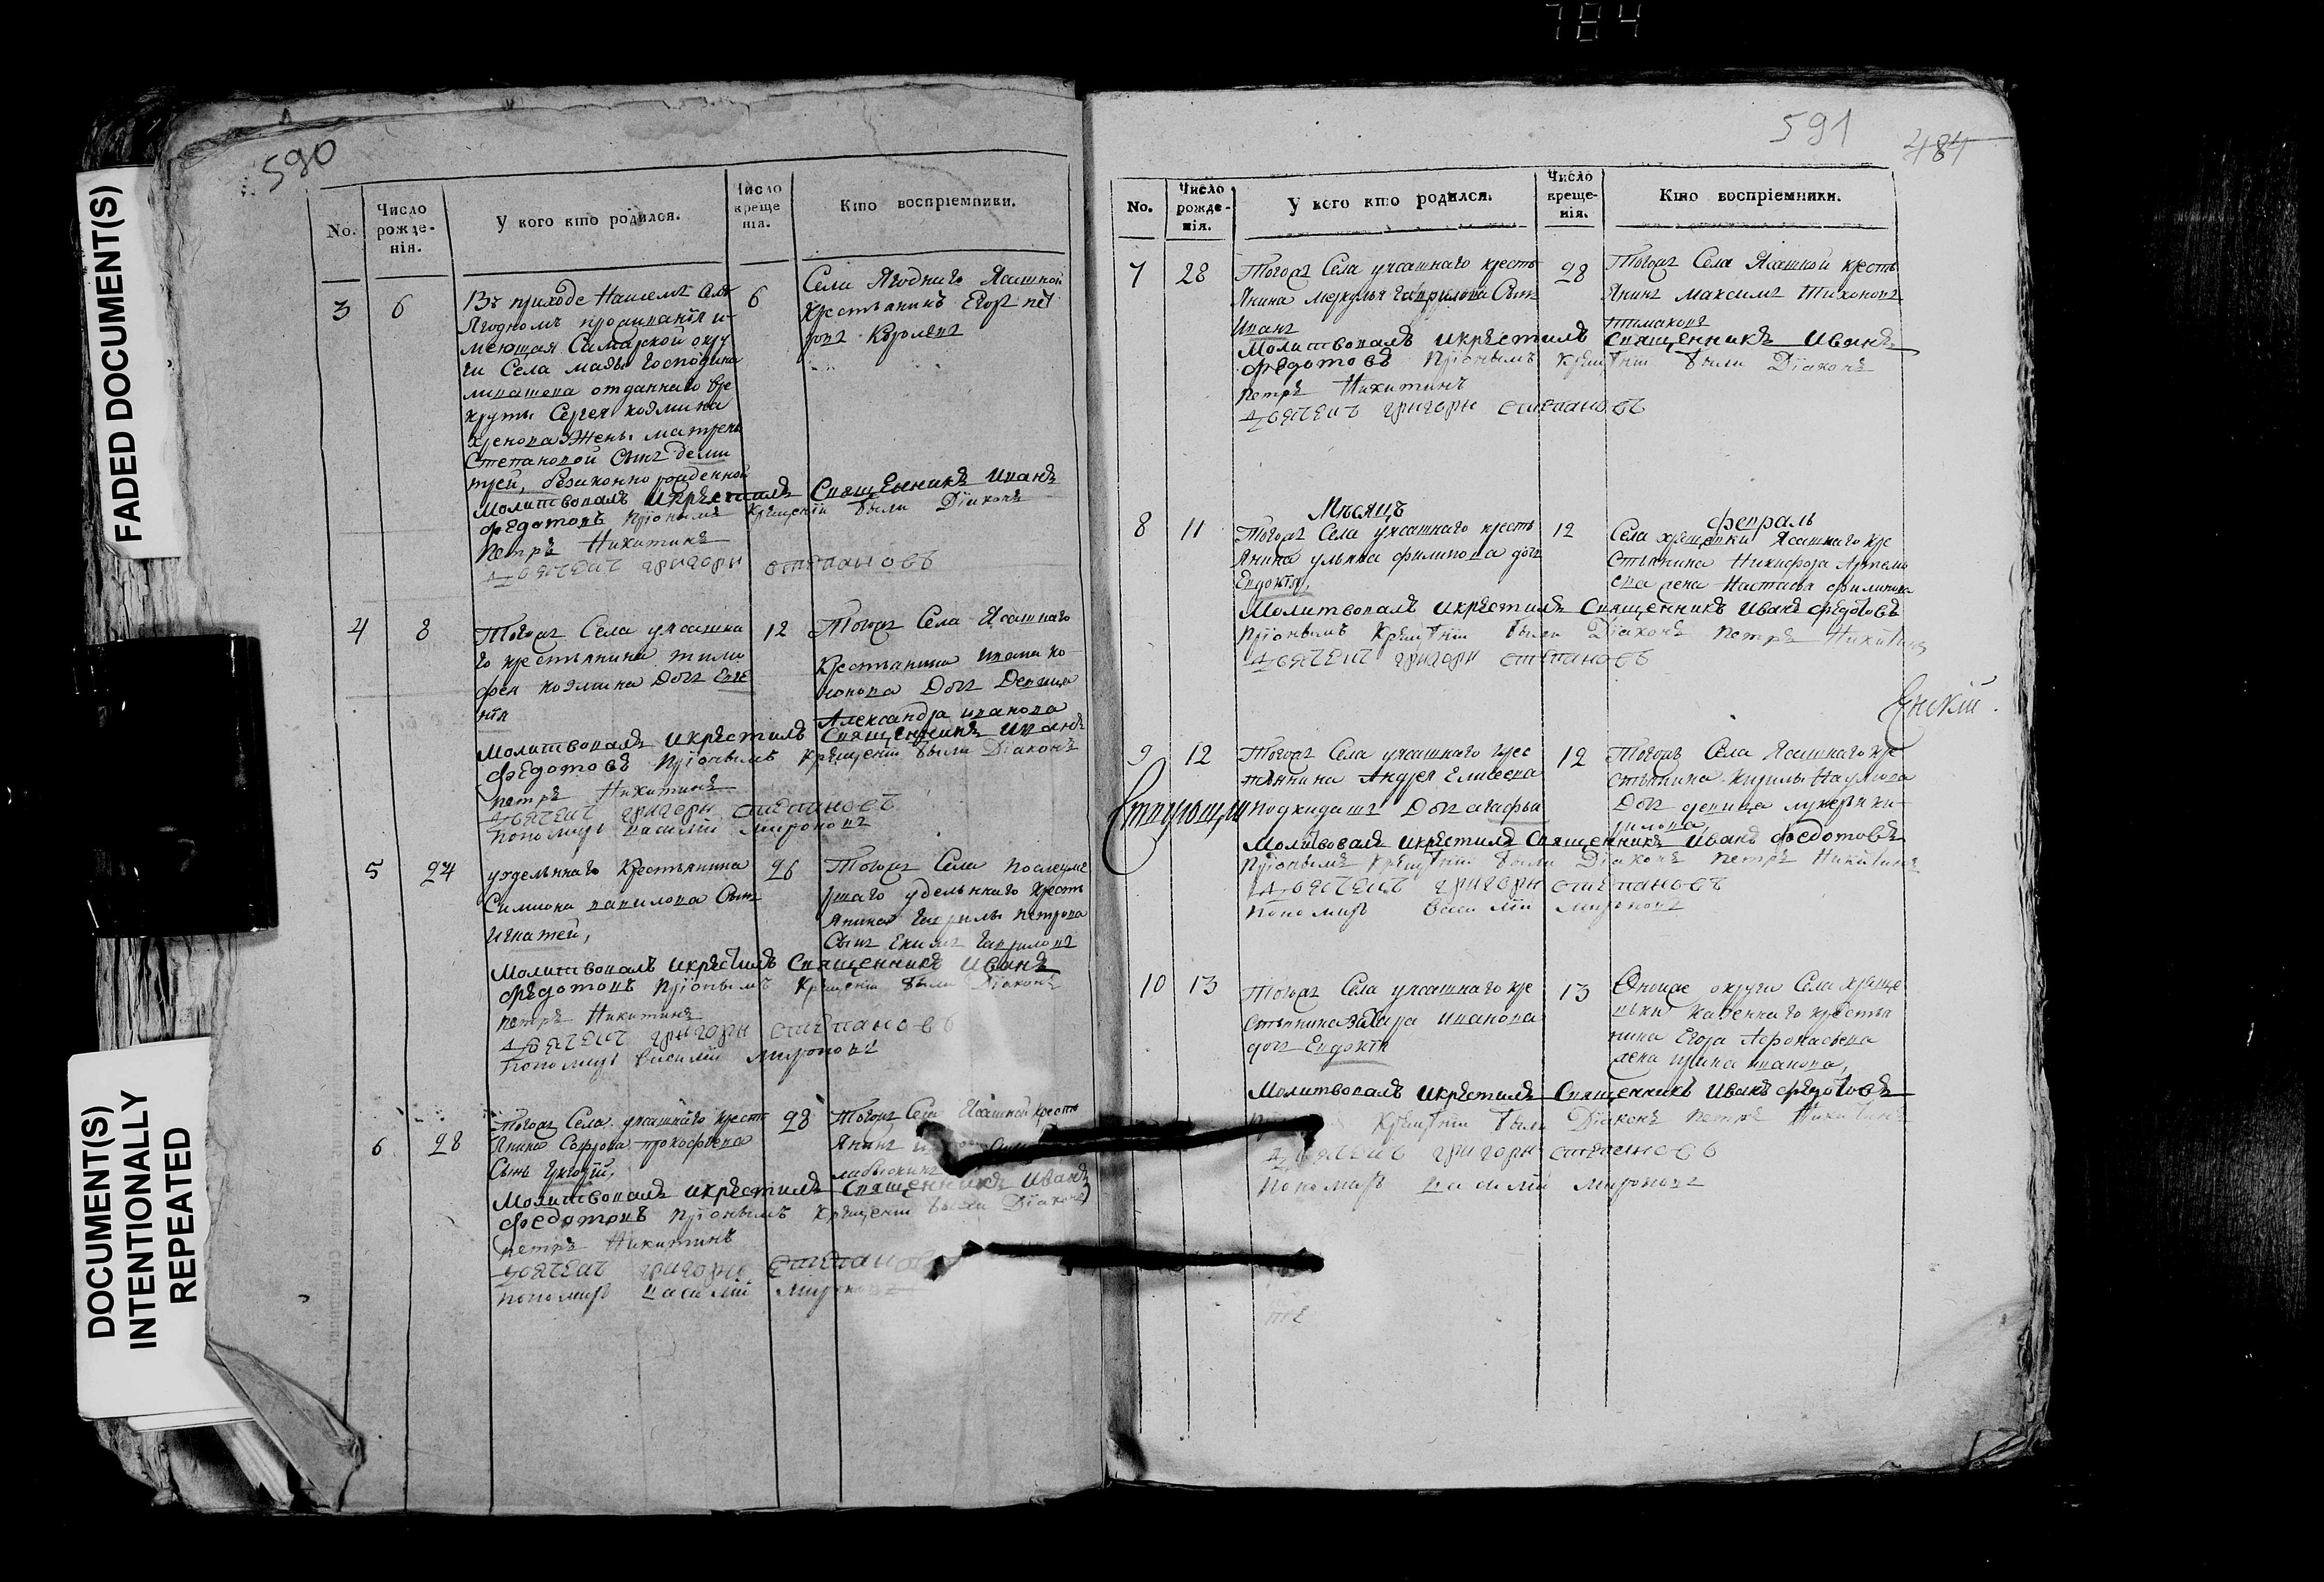 784
FADED DOCUMENT(S)
DOCUMENT(S)
INTENTIONALLY
REPEATED
590
No.
Число рожде-нія.
У кого кто родился.
Число креще нія.
Кто воспріемники.
3 6
Въ приходе Нашемъ Селе
Ягодномъ пропитанія и-
меющая Самарской окру
ги Села Господина
отданнаго вре
круты Сергея козмина
жены матрены
Степановой Сынъ дими
трей, безаконно рожденной
6
Села Ягоднаго Ясашной
Крестьянинъ Егоръ пет
ровъ Королевъ
Молитвовалъ икрестилъ Священникъ Иванъ
Федотовъ Приономъ крещеніи были Діаконъ
Петръ Никитинъ
Дьячекъ григори степановъ
4 8
Тогожъ Села уясашна
го крестьянина тимо
фея козмина Дочь Евге
нія
12
Тогожъ Села Ясашнаго
Крестьянина ивана ко
нонова Дочь Девица
Александра иванова
Молитвовалъ икрестилъ Священникъ Иванъ
Федотовъ Приономъ Крещеніи были Діаконъ
Петръ Никитинъ
Дьячекъ григори степановъ
Пономарь василій мироновъ
5 24
удельннаго Крестьянина
Симиона вавилова Сынъ
Игнатей,
26
Тогожъ Села Послеуме
ршаго удельннаго Кресть
янина Гаврилы петрова
Сынъ Екимъ Гавриловъ
Молитвовалъ икрестилъ Священникъ Иванъ
Федотовъ Приономъ крещеніи были Діаконъ
Петръ Никитинъ
Дьячекъ григори степановъ
Пономарь василій мироновъ
6 28
Тогожъ Села уясашнаго кресть
янина Софрона прокофьева
Сынъ Григорій,
28
Тогожъ Села Ясашной кресть
янинъ
Молитвовалъ икрестилъ Священникъ Иванъ
Федотовъ Приономъ крещеніи были Діаконъ
петръ Никитинъ
Дьячекъ григори степановъ
Пономарь василій мироновъ
591
484
No.
Число рожде-нія.
У кого кто родился.
Число креще-нія.
Кто воспріемники.
7 28
Тогожъ Села уясашнаго кресть
янина меркулья Гаврилова Сынъ
Иванъ
28
Тогожъ Села Ясашной кресть
янинъ максимъ Тихоновъ
тимаковъ
Молитвовалъ икрестилъ Священникъ Иванъ
Федотовъ Приономъ крещеніи были Діаконъ
Петръ Никитинъ
Дьячекъ григори степановъ
Мѣсяцъ февраль
8 11
Тогожъ Села уясашнаго кресть
янина ульяна филипова дочь
Евдокія,
12
Села хрещевки Ясашнаго кре
стьянина Никифора Артемь
ева жена Настасья филипова
Молитвовалъ икрестилъ Священникъ Иванъ Федотовъ
Приономъ Крещеніи были Діаконъ петръ Никитинъ
Дьячекъ григори степановъ
9 12
Тогожъ Села уясашнаго крес
тьянина Андрея Елисеева
подкидашъ Дочь агафья
12
Тогожъ Села Ясашнаго кре
стьянина Кирилы Наумова
Дочь девица лукерья ки-
рилова,
Молитвовалъ икрестилъ Священникъ Иванъ Федотовъ
Приономъ крещеніи были Діаконъ петръ Никитинъ
Дьячекъ григори степановъ
Пономарь василій мироновъ
10 13
Тогожъ Села уясашнаго кре
стьянина иванова
дочь Евдокія
13
Оноиже округи Села хреще
вки Казеннаго крестья
нина Егора Афонасьева
жена ирина иванова,
Молитвовалъ икрестилъ Священникъ Иванъ Федотовъ
Крещеніи были Діаконъ петръ Никитинъ
Дьячекъ григори степановъ
Пономарь василій мироновъ